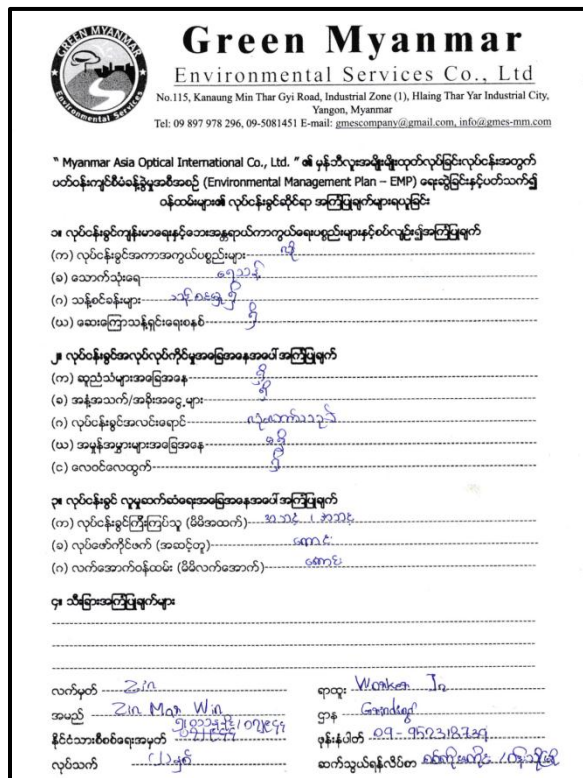 GREEN MYANMAR
Environmental Services
Green Myanmar
Environmental Services Co., Ltd
No.115, Kanaung Min Thar Gyi Road, Industrial Zone (1), Hlaing Thar Yar Industrial City,
Yangon, Myanmar
Tel: 09 897 978 296, 09-5081451 E-mail: gmescompany@gmail.com, info@gmes-mm.com
" Myanmar Asia Optical International Co., Ltd. " ၏ မှန်ဘီလူးအမျိုးမျိုးထုတ်လုပ်ခြင်းလုပ်ငန်းအတွက်
ပတ်ဝန်းကျင်စီမံခန့်ခွဲမှုအစီအစဉ် (Environmental Management Plan – EMP) ရေးဆွဲခြင်းနှင့်ပတ်သက်၍
ဝန်ထမ်းများ၏ လုပ်ငန်းခွင်ဆိုင်ရာ အကြံပြုချက်များရယူခြင်း
၁။ လုပ်ငန်းခွင်ကျန်းမာရေးနှင့်ဘေးအန္တရာယ်ကာကွယ်ရေးပစ္စည်းများနှင့်စပ်လျဉ်း၍အကြံပြုချက်
(က) လုပ်ငန်းခွင်အကာအကွယ်ပစ္စည်းများ
(ခ) သောက်သုံးရေ ရေသန့်
(ဂ) သန့်စင်ခန်းများ ရှိ
(ဃ) ဆေးကြောသန့်ရှင်းရေးစနစ် ရှိ
၂။ လုပ်ငန်းခွင်အလုပ်လုပ်ကိုင်မှုအခြေအနေအပေါ် အကြံပြုချက်
(က) ဆူညံသံများအခြေအနေ ရှိ
(ခ) အနံ့အသက်/အခိုးအငွေ့များ ရှိ
(ဂ) လုပ်ငန်းခွင်အလင်းရောင် လုံလောက်သည်
(ဃ) အမှုန်အမွှားများအခြေအနေ မရှိ
(င) လေဝင်လေထွက် ရှိ
၃။ လုပ်ငန်းခွင် လူမှုဆက်ဆံရေးအခြေအနေအပေါ် အကြံပြုချက်
(က) လုပ်ငန်းခွင်ကြီးကြပ်သူ (မိမိအထက်)
(ခ) လုပ်ဖော်ကိုင်ဖက် (အဆင့်တူ) ကောင်း
(ဂ) လက်အောက်ဝန်ထမ်း (မိမိလက်အောက်) ကောင်း
၄။ သီးခြားအကြံပြုချက်များ
လက်မှတ် Zin
ရာထူး Worker
အမည် Zin Mar Win
ဌာန
နိုင်ငံသားစိစစ်ရေးအမှတ်
ဖုန်းနံပါတ် 09-952318739
လုပ်သက်
ဆက်သွယ်ရန်လိပ်စာ